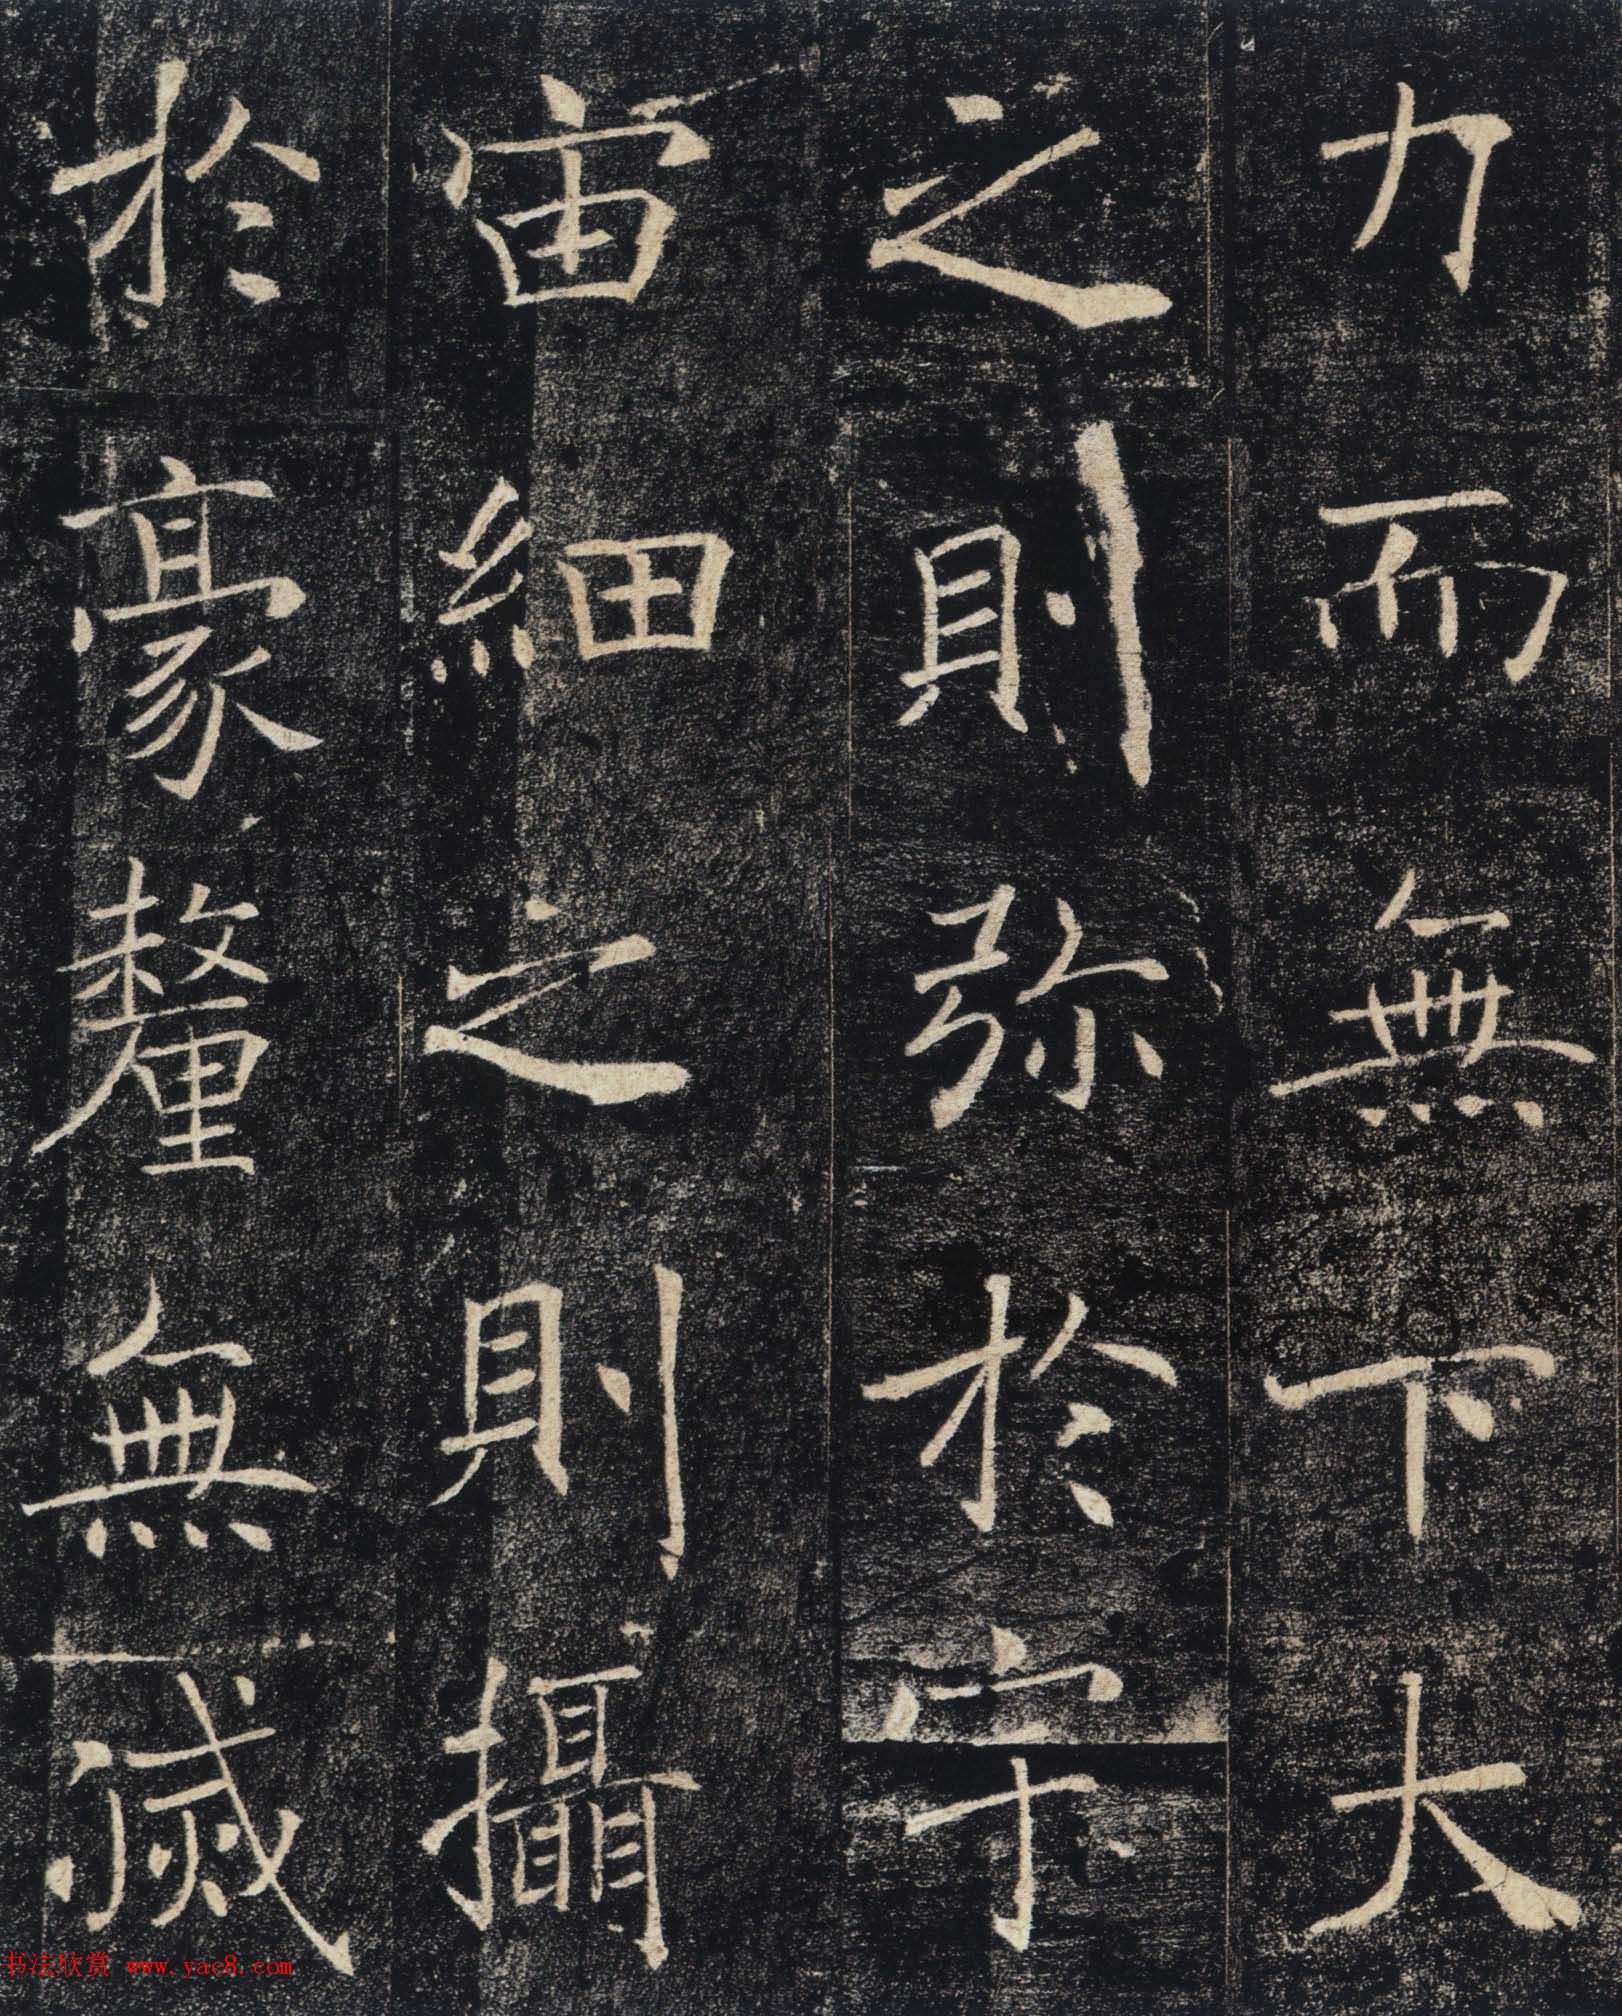 力而無下大
之則弥於宇
宙細之則攝
於豪釐無滅
书法欣赏 www.yac8.com